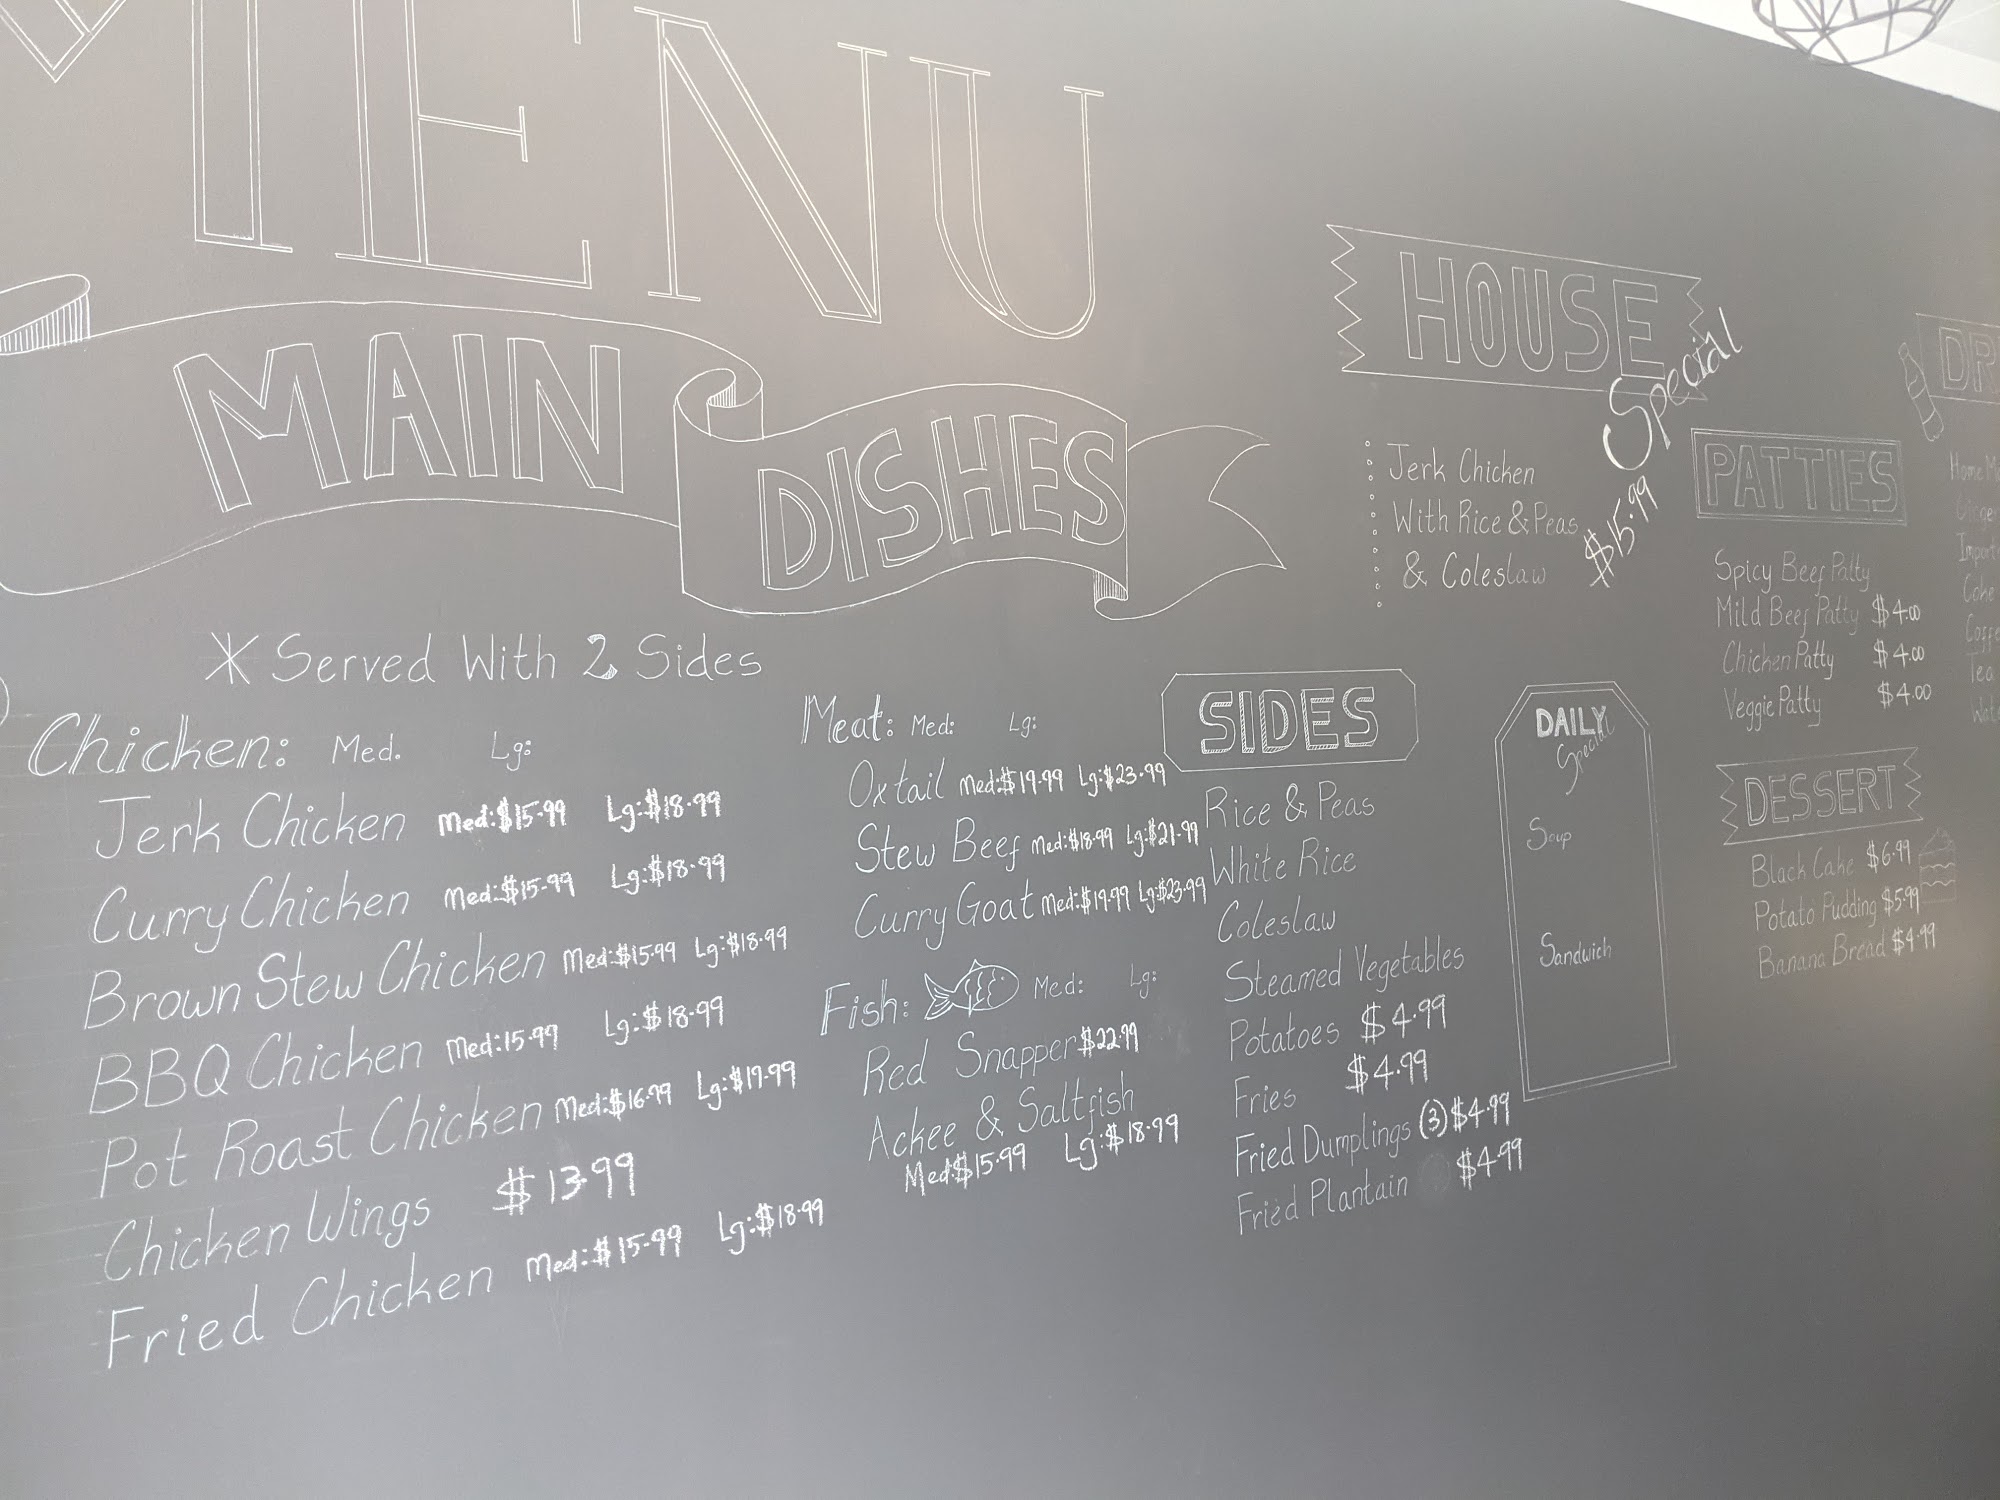 MENU
MAIN DISHES
* Served With 2 Sides
Chicken: Med. Lg:
Jerk Chicken Med:$15.99 Lg:$18.99
Curry Chicken Med:$15.99 Lg:$18.99
Brown Stew Chicken Med:$15.99 Lg:$18.99
BBQ Chicken Med:15.99 Lg:$18.99
Pot Roast Chicken Med:$16.99 Lg:$19.99
Chicken Wings $13.99
Fried Chicken Med:$15.99 Lg:$18.99
Meat: Med: Lg:
Oxtail Med:$19.99 Lg:$23.99
Stew Beef Med:$18.99 Lg:$21.99
Curry Goat Med:$19.99 Lg:$23.99
Fish: Med: Lg:
Red Snapper $22.99
Ackee & Saltfish
Med:$15.99 Lg:$18.99
SIDES
Rice & Peas
White Rice
Coleslaw
Steamed Vegetables
Potatoes $4.99
Fries $4.99
Fried Dumplings (3) $4.99
Fried Plantain $4.99
HOUSE
Special
Jerk Chicken
With Rice & Peas
& Coleslaw
$15.99
DAILY
Special
Soup
Sandwich
PATTIES
Spicy Beef Patty
Mild Beef Patty $4.00
Chicken Patty $4.00
Veggie Patty $4.00
DESSERT
Black Cake $6.99
Potato Pudding $5.99
Banana Bread $4.99
DR
Home M
Ginger
Import
Coke
Coffe
Tea
Wat